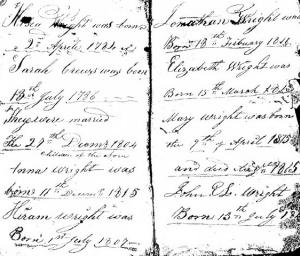 Wright was born
April 1784
Sarah Crews was born
18th July 1786
They were married
The 24th Decem 1804
children of the above
Anna Wright was
born 11th Decemb 1815
Hiram Wright was
Born 1st July 1807
Jonathan Wright was
Born 18th February
Elizabeth Wright was
Born 15th March
Mary Wright was born
the 7th of April
and died
John Wright
Born 15th July